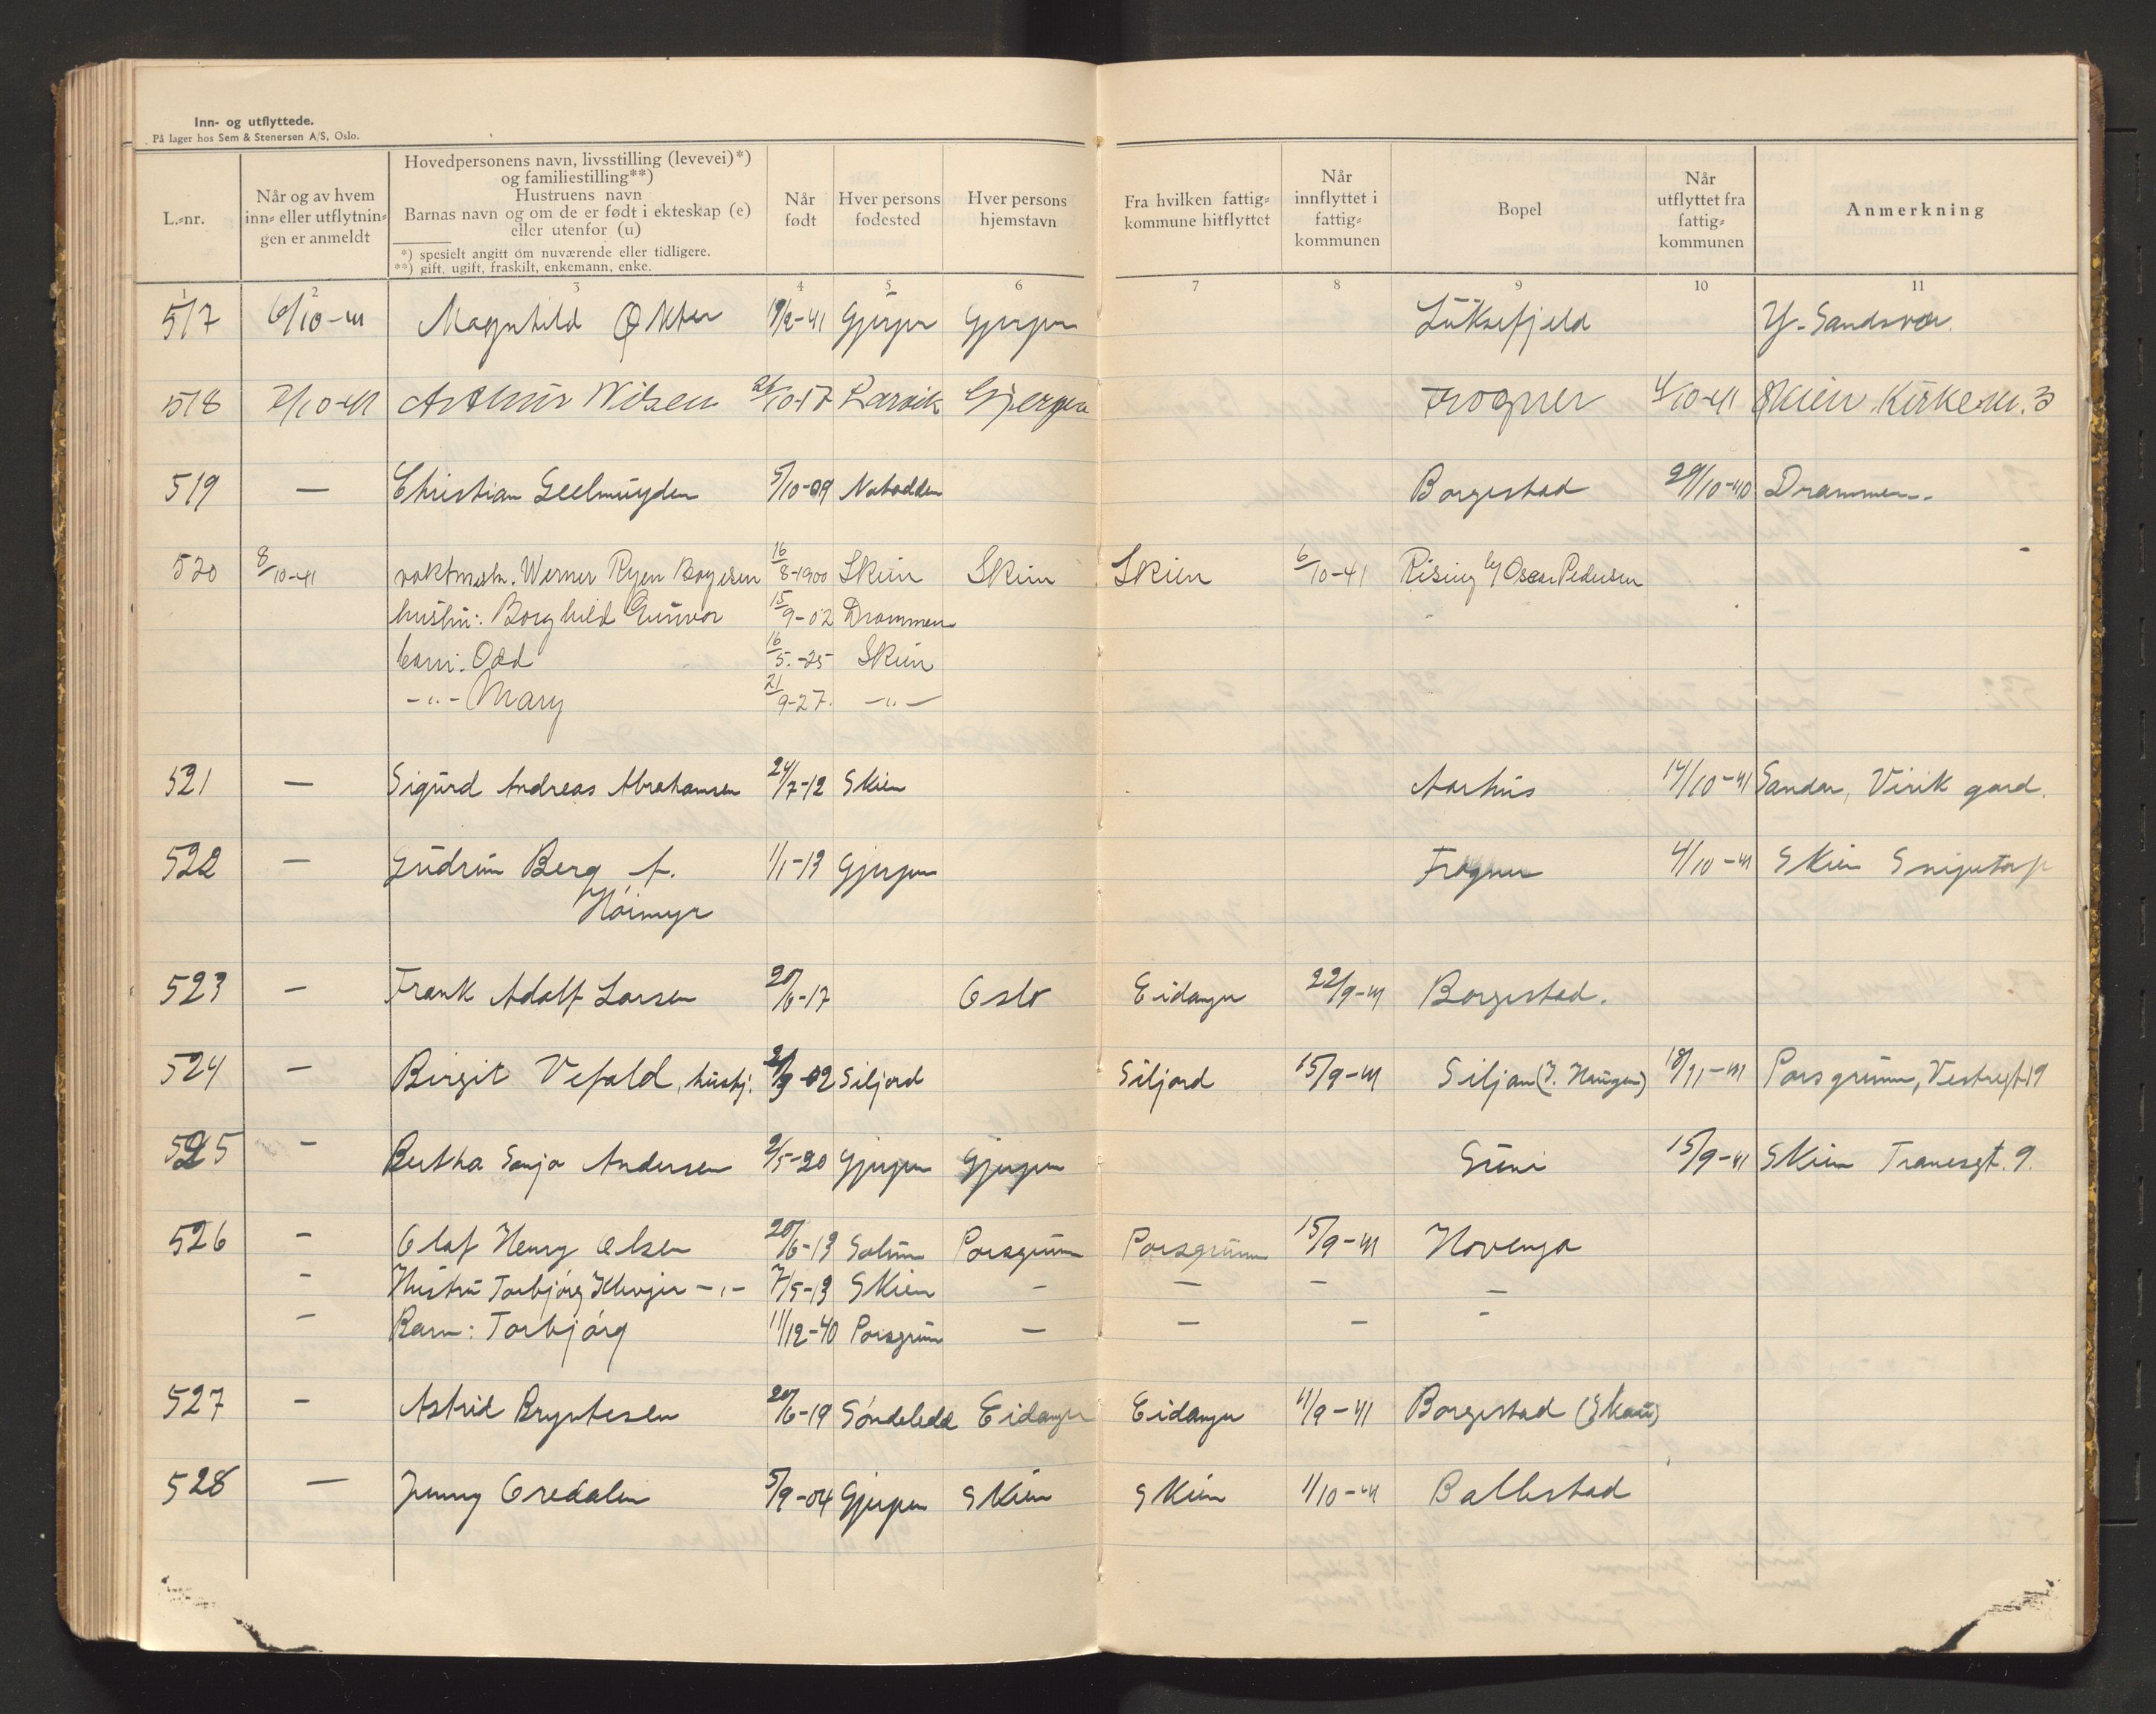 Inn- og utflyttede.
På lager hos Sem & Stenersen A/S, Oslo.
L.-nr.
Når og av hvem inn- eller utflytningen er anmeldt
Hovedpersonens navn, livsstilling (levevei)*)
og familiestilling**)
Hustruens navn
Barnas navn og om de er født i ekteskap (e)
eller utenfor (u)
*) spesielt angitt om nuværende eller tidligere.
**) gift, ugift, fraskilt, enkemann, enke.
Når født
Hver persons fødested
Hver persons hjemstavn
Fra hvilken fattigkommune hitflyttet
Når innflyttet i fattigkommunen
Bopel
Når utflyttet fra fattigkommunen
Anmerkning
1 2 3 4 5 6 7 8 9 10 11
517 6/10-41 Magnhild 19/2-41 Gjerpen Gjerpen Luksefjeld Y. Sandsvær.
518 7/10-41 Arthur Nilsen 26/10-17 Larvik Gjerpen Frogner 4/10-41 Skien Kirkem. 3
519 — Christian Geelmuyden 5/10-09 Notodden Borgestad 29/10-40 Drammen.
520 8/10-41 vaktmestr. Werner Ryen Bøyesen 16/8-1900 Skien Skien Skien 6/10-41 Rising Oscar Pedersen
hustru: Borghild Gunvor 15/9-02 Drammen
barn: Odd 16/5.-25 Skien
-"- Mary 21/9-27. -"-
521 — Sigurd Andreas Abrahamsen 24/7-12 Skien Aarhus 14/10-41 Sandar, Virik gard.
522 — Gudrun Berg f. 1/1-13 Gjerpen Frogner 4/10-41 Skien Snipetorp
Høimyr
523 — Frank Adolf Larsen 20/6-17 Oslo Eidanger 22/9-41 Borgestad.
524 — Birgit Vefald, hushj. 21/3-02 Siljord Siljord 15/9-41 Siljan (J. Haugen) 18/11-41 Porsgrunn, Vestregt 19
525 — Bertha Sonja Andersen 2/5-20 Gjerpen Gjerpen Gruni 15/9-41 Skien Tranesgt. 9.
526 — Olaf Henry Olsen 20/6-13 Solum Porsgrunn Porsgrunn 15/9-41 Hovenga
— Hustru Torbjørg -"- 7/5-13 Skien — — — —
— Barn: Torbjørg 11/12-40 Porsgrunn — — — —
527 — Astrid Bryntesen 20/6-19 Søndeled Eidanger Eidanger 11/9-41 Borgestad
528 — Jenny Oredalen 5/9-04 Gjerpen Skien Skien 1/10-41 Ballestad